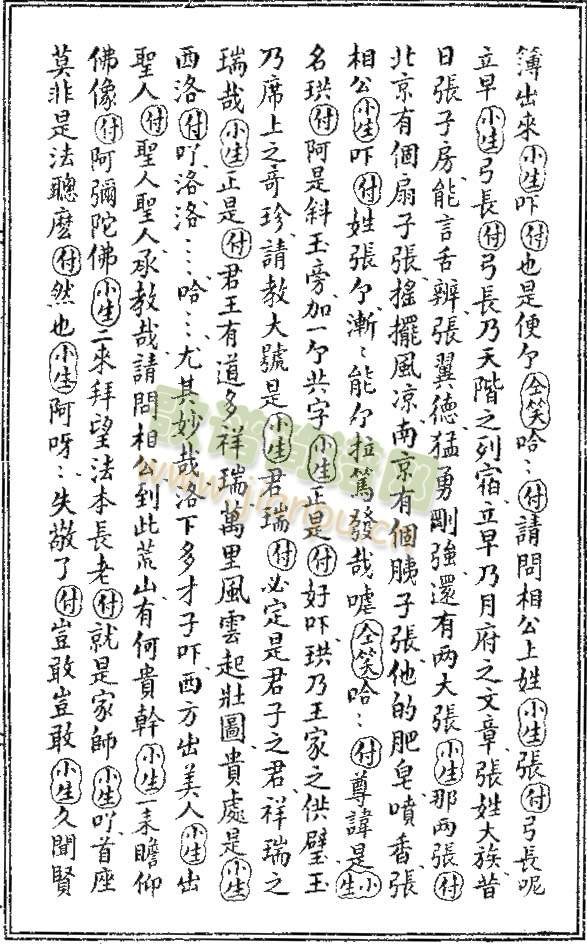 簿出來小生吓付也是便个仝笑哈⋯付請問相公上姓小生張付弓長呢
立早小生弓長付弓長乃天階之列宿立早乃月府之文章張姓大族昔
日張子房能言舌辨張翼德猛勇剛強還有两大張小生那两張付
北京有個扇子張搖擺風凉南京有個胰子張他的肥皂噴香張
相公小生吓付姓張个漸〻能个拉篤發哉嘘仝笑哈⋯付尊諱是小生
名珙付阿是斜玉旁加一个共字小生正是付好吓珙乃王家之供璧玉
乃席上之奇珍請教大號是小生君瑞付必定是君子之君祥瑞之
瑞哉小生正是付君王有道多祥瑞萬里風雲起壯圖貴處是小生
西洛付吖洛洛⋯哈⋯尤其妙哉洛下多才子吓西方出美人小生出
聖人付聖人聖人承教哉請問相公到此荒山有何貴幹小生一来瞻仰
佛像付阿彌陀佛小生二來拜望法本長老付就是家師小生吖首座
莫非是法聰麽付然也小生阿呀⋯失敬了付豈敢豈敢小生久聞賢
歌谱简谱网
www.jianpu.cn